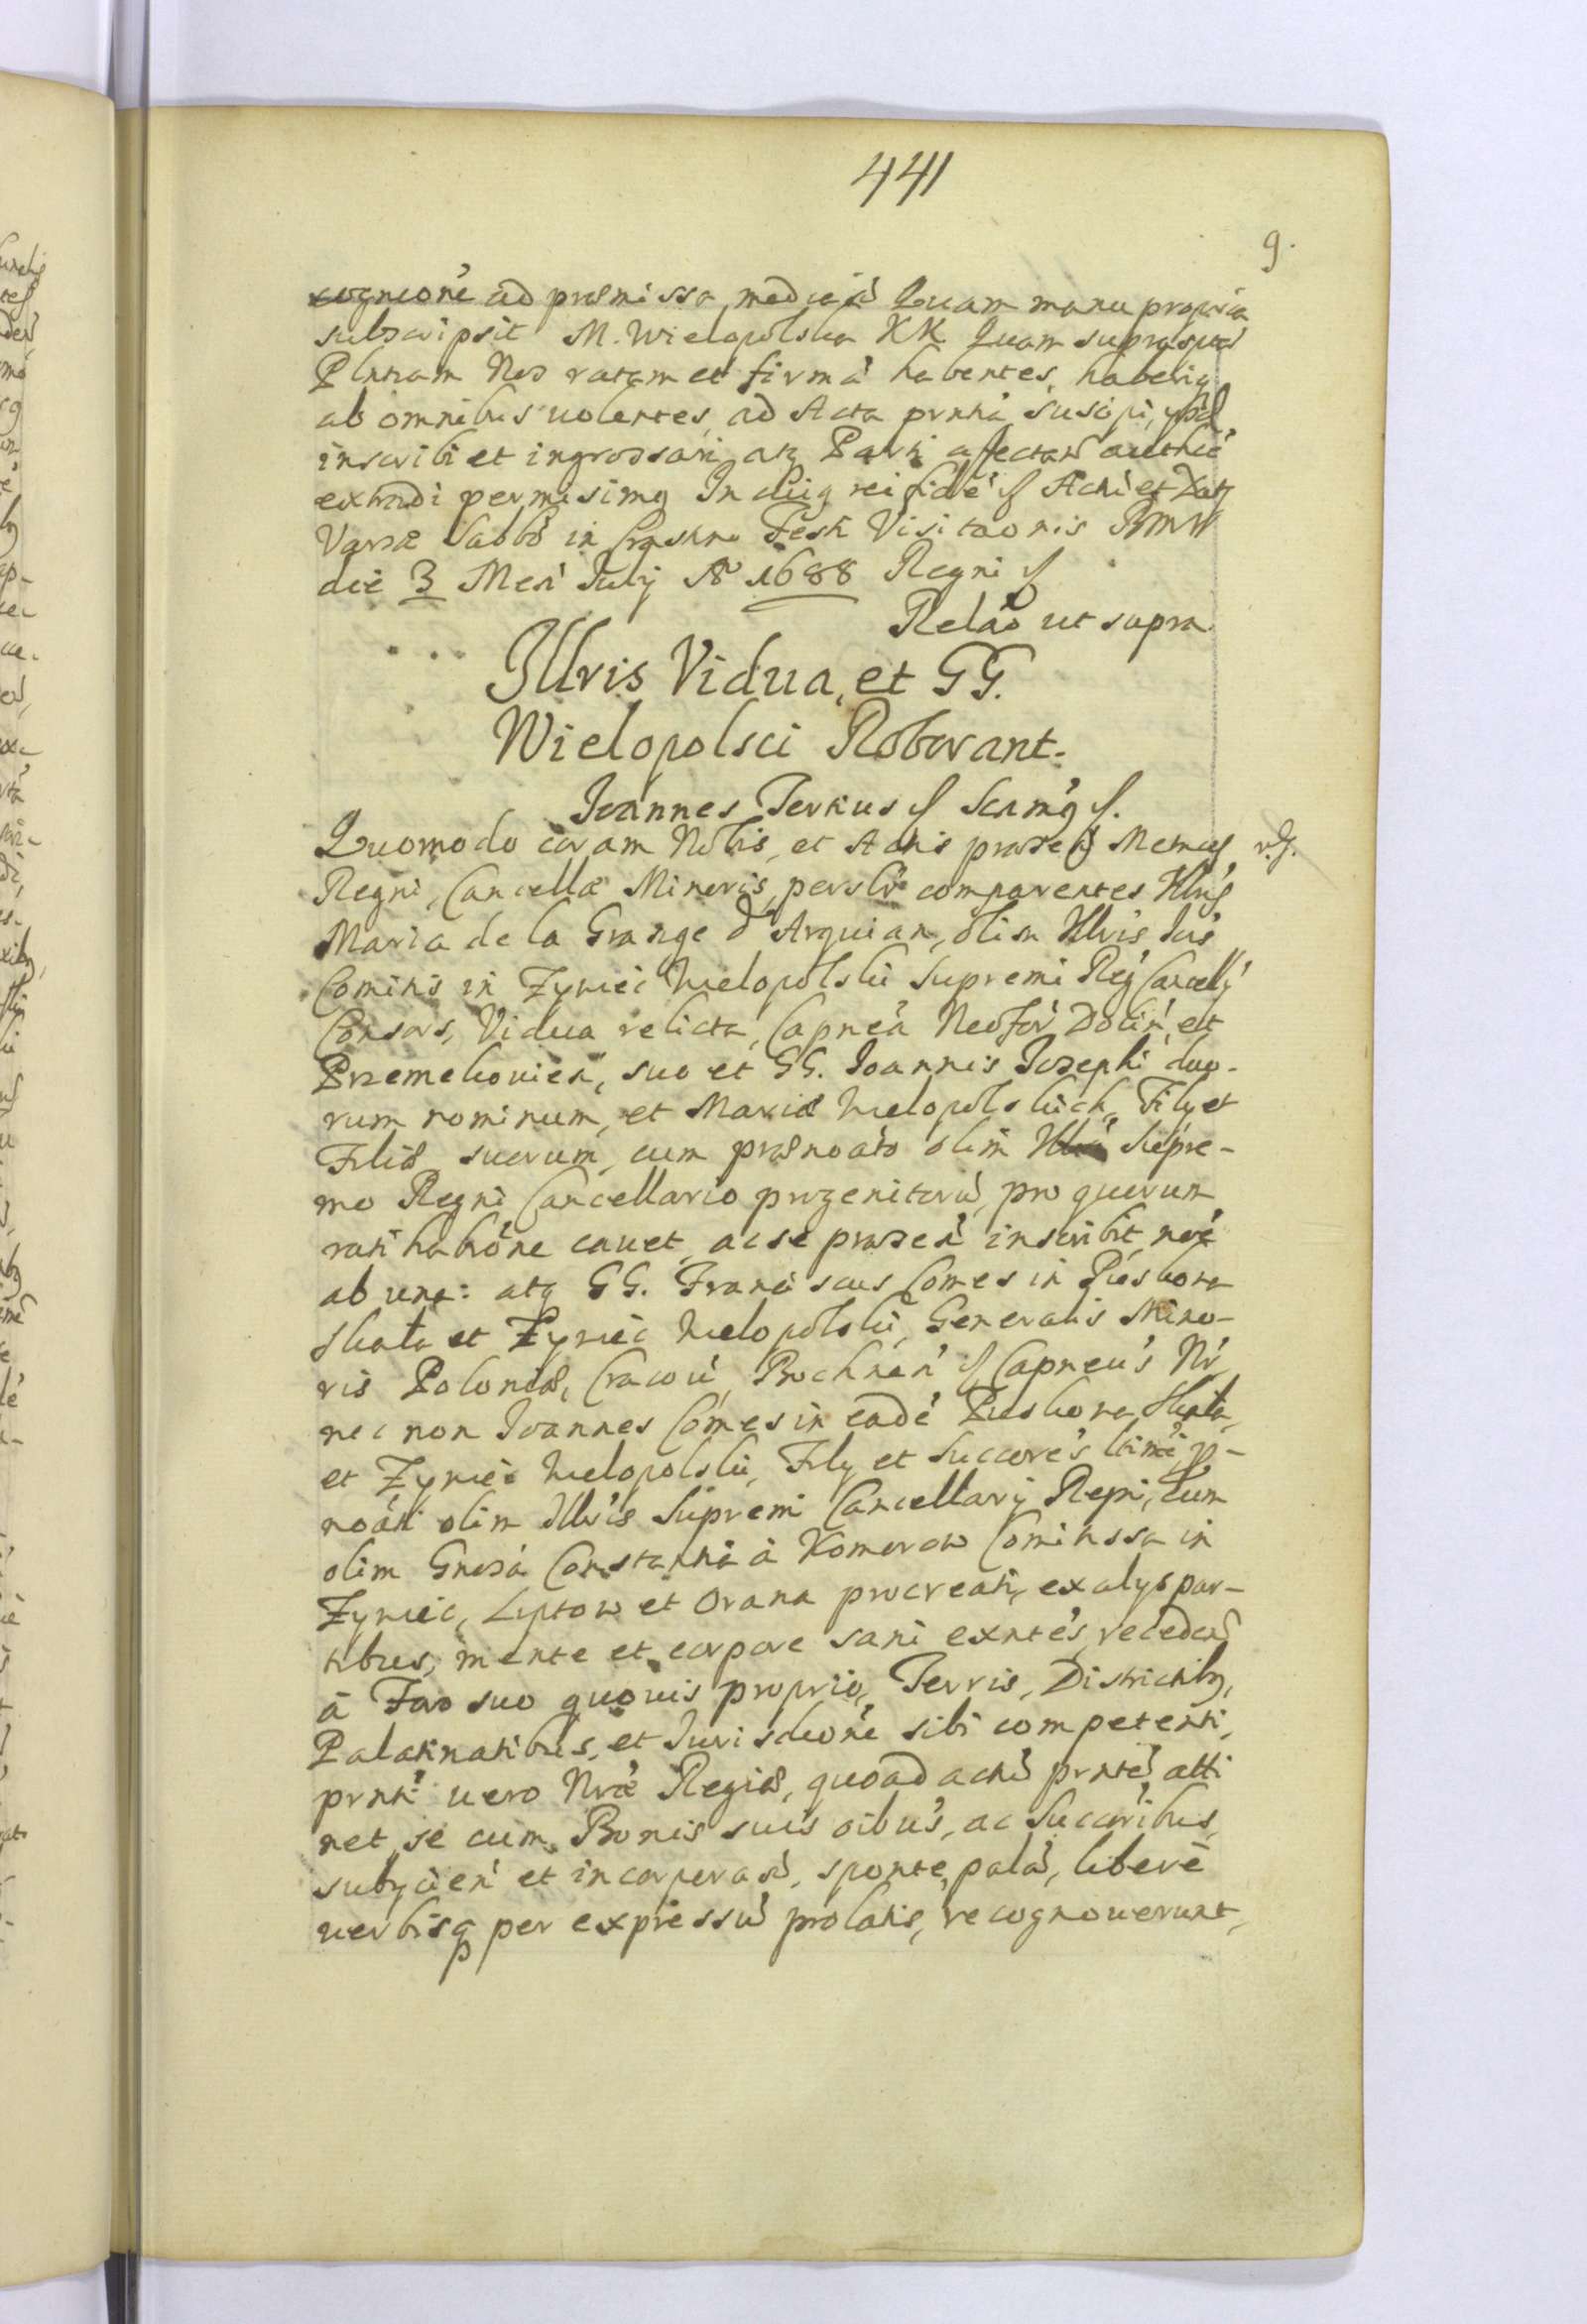 441
9.
cognicone ad præmissa mediejã Quam manu propria
subscripsit M. Wielopolska KK Quam suprascrã
Plntiam Nos ratam et firmã habentes, haberiq
ab omnibus uolentes, ad Acta prntia suscipi,
inscribi et ingrossari atq Parti affectan authce
extradi permisimg In cuig rei fidé Actũ et Datt
Varsæ Sabbo in Crastino Festi Visitaonis BMV
die 3 Mens July A° 1688 Regni
Relao ut supra
Illris Vidua, et GG.
Wielopolsci Roborant.
Joannes Tertius Scam'g.
Quomodo coram Nobis, et Actis præsen Metrices
Regni, Cancellæ Minoris, persltr comparentes Illris
Maria de la Grange d'Arquian, olim Illris Jois
Comitis in Zywiec Wielopolski Supremi Reg Cancelly
Consors, Vidua relicta, Capnea Neofor Dolin, et
Przemekouien, suo et GG. Joannis Josephi duo-
rum nominum, et Mariæ Wielopolskich, Fily et
Filiæ suorum, cum prænoato olim Supre-
mo Regni Cancellario progenitorũ, pro quorum
ratihabione cauet, ac se præsen inscribit, noie
ab una: atq GG. Franciscus Comes in Pieskowa
Skała et Zywiec Wielopolski, Generalis Mino-
ris Poloniæ, Cracoui, Bochnen Capneus Nr,
nec non Joannes Comes in eadé Pieskowa Skała,
et Zywiec Wielopolski, Fily et Succores ltimi p-
noati olim Illris Supremi Cancellary Regni, cum
olim Gnosa Constantia à Komorow Comitissa in
Zywiec, Liptow et Orawa procreati, ex alys par-
tibus, mente et corpore sani exntes, recedeñ
à Foro suo quouis proprio, Terris, Districtibg,
Palatinatibus, et Jurisdcone sibi competenti,
prnti uero Nræ Regiæ, quoad actũ prntẽ atti
net, se cum Bonis suis oibus, ac Succoribus,
subycien et incorporañ, sponte, palã, liberè
uerbisq per expressũ prolatis, recognouerunt,